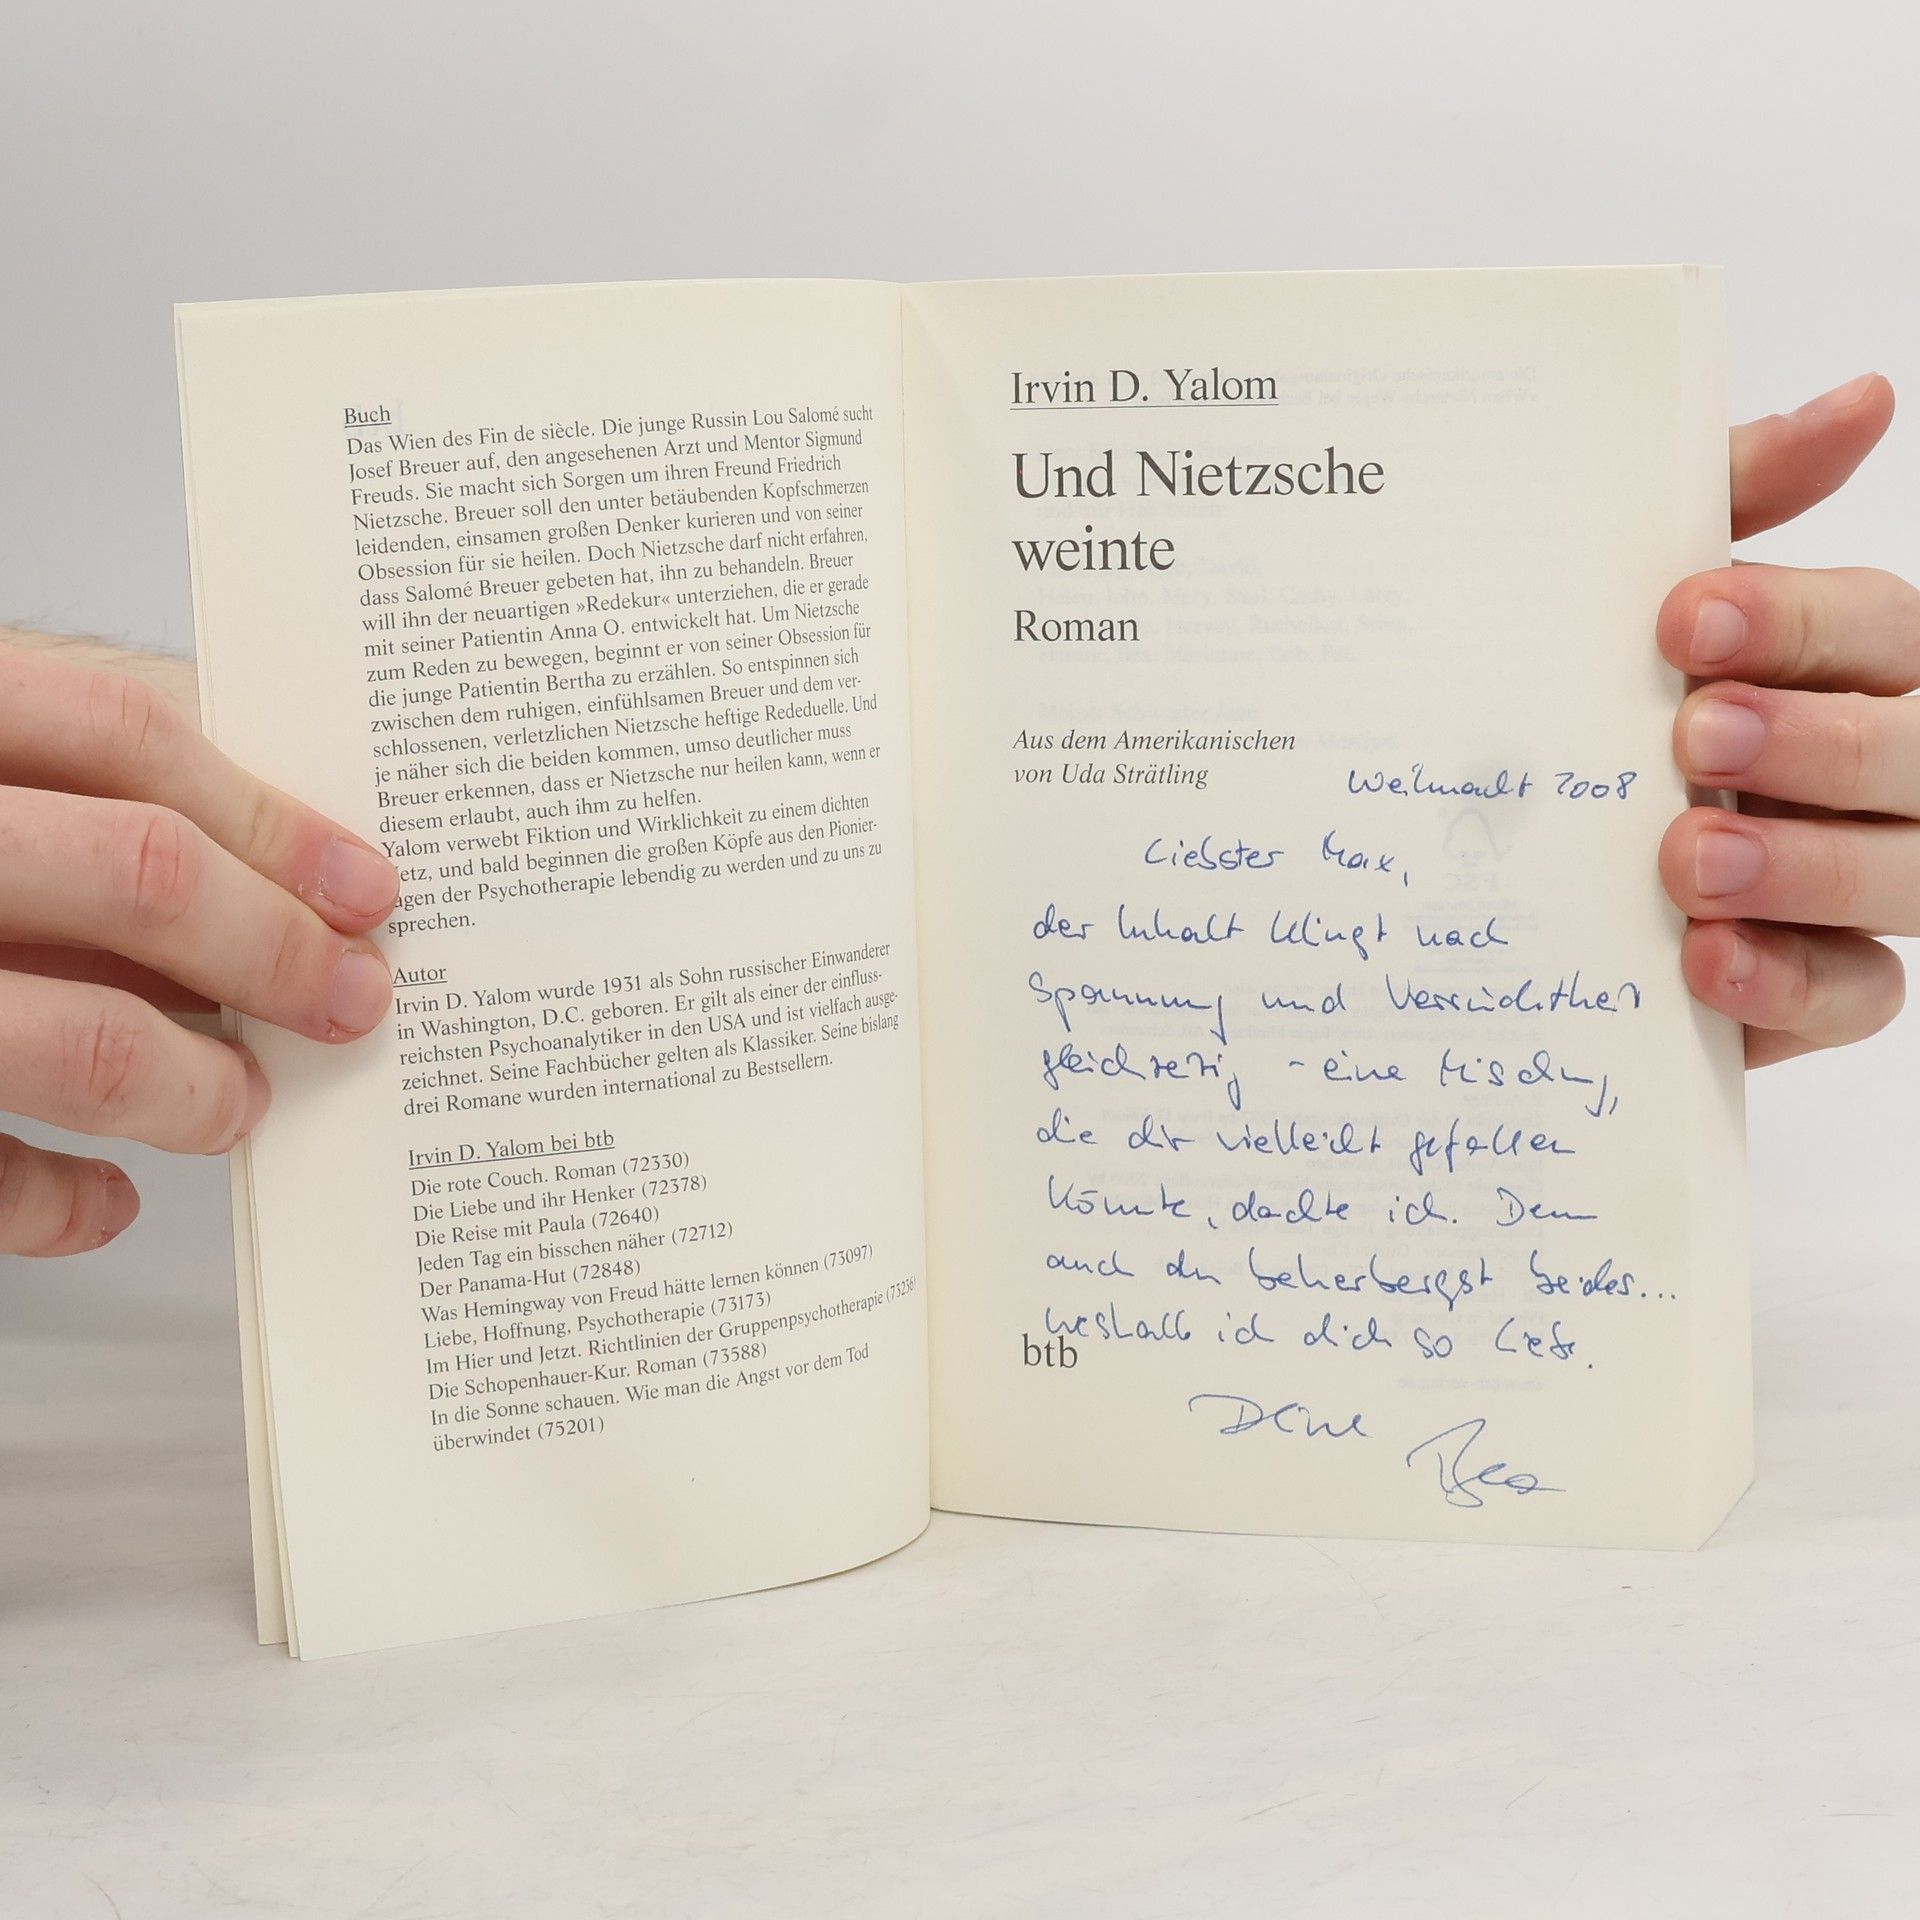 Buch
Das Wien des Fin de siècle. Die junge Russin Lou Salomé sucht
Josef Breuer auf, den angesehenen Arzt und Mentor Sigmund
Freuds. Sie macht sich Sorgen um ihren Freund Friedrich
Nietzsche. Breuer soll den unter betäubenden Kopfschmerzen
leidenden, einsamen großen Denker kurieren und von seiner
Obsession für sie heilen. Doch Nietzsche darf nicht erfahren,
dass Salomé Breuer gebeten hat, ihn zu behandeln. Breuer
will ihn der neuartigen »Redekur« unterziehen, die er gerade
mit seiner Patientin Anna O. entwickelt hat. Um Nietzsche
zum Reden zu bewegen, beginnt er von seiner Obsession für
die junge Patientin Bertha zu erzählen. So entspinnen sich
zwischen dem ruhigen, einfühlsamen Breuer und dem ver-
schlossenen, verletzlichen Nietzsche heftige Rededuelle. Und
je näher sich die beiden kommen, umso deutlicher muss
Breuer erkennen, dass er Nietzsche nur heilen kann, wenn er
diesem erlaubt, auch ihm zu helfen.
Yalom verwebt Fiktion und Wirklichkeit zu einem dichten
etz, und bald beginnen die großen Köpfe aus den Pionier-
agen der Psychotherapie lebendig zu werden und zu uns zu
sprechen.
Autor
Irvin D. Yalom wurde 1931 als Sohn russischer Einwanderer
in Washington, D.C. geboren. Er gilt als einer der einfluss-
reichsten Psychoanalytiker in den USA und ist vielfach ausge-
zeichnet. Seine Fachbücher gelten als Klassiker. Seine bislang
drei Romane wurden international zu Bestsellern.
Irvin D. Yalom bei btb
Die rote Couch. Roman (72330)
Die Liebe und ihr Henker (72378)
Die Reise mit Paula (72640)
Jeden Tag ein bisschen näher (72712)
Der Panama-Hut (72848)
Was Hemingway von Freud hätte lernen können (73097)
Liebe, Hoffnung, Psychotherapie (73173)
Im Hier und Jetzt. Richtlinien der Gruppenpsychotherapie (73236)
Die Schopenhauer-Kur. Roman (73588)
In die Sonne schauen. Wie man die Angst vor dem Tod
überwindet (75201)
Irvin D. Yalom
Und Nietzsche
weinte
Roman
Aus dem Amerikanischen
von Uda Strätling
Weihnacht 2008
Liebster Max,
der Inhalt klingt nach
Spannung und Verrücktheit
gleichzeitig - eine Mischung,
die dir vielleicht gefallen
könnte, dachte ich. Denn
auch du beherbergst beides...
weshalb ich dich so lieb.
btb
Deine
Bea